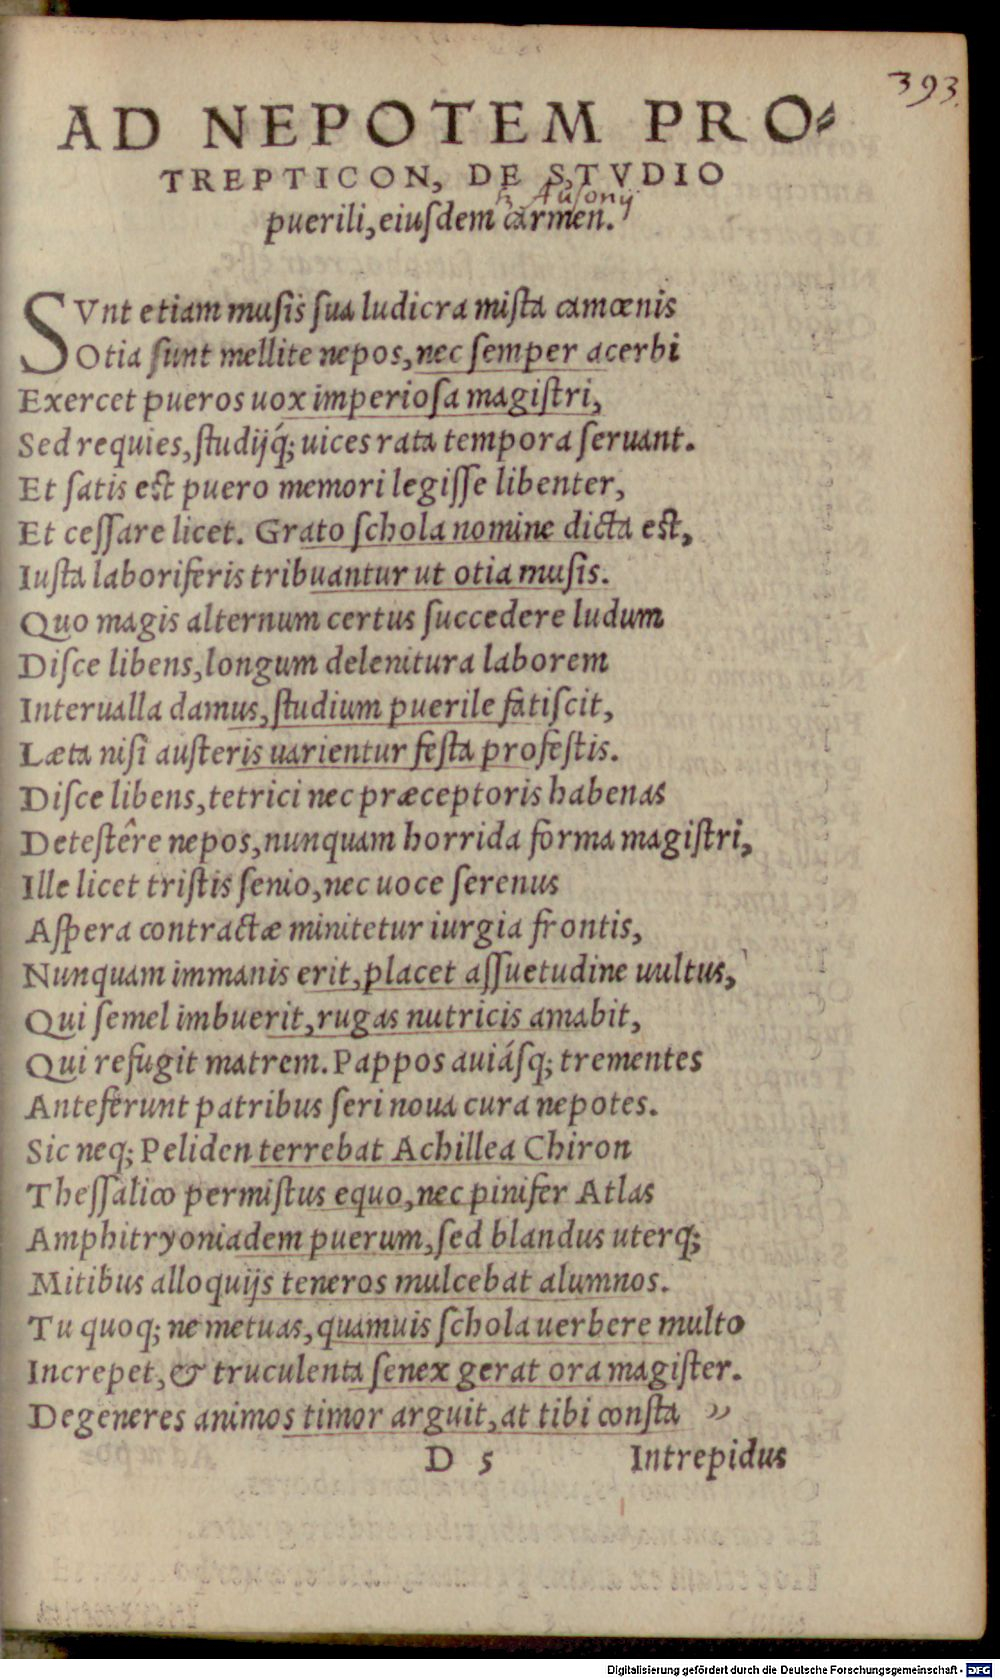 393.
AD NEPOTEM PRO-
TREPTICON, DE STVDIO
h. Ausonij
puerili, eiuſdem carmen.
SVnt etiam muſis ſua ludicra miſta camœnis
Otia ſunt mellite nepos, nec ſemper acerbi
Exercet pueros uox imperioſa magiſtri,
Sed requies, ſtudijq́; uices rata tempora ſeruant.
Et ſatis est puero memori legiſſe libenter,
Et ceſſare licet. Grato ſchola nomine dicta est,
Iuſta laboriferis tribuantur ut otia muſis.
Quo magis alternum certus ſuccedere ludum
Diſce libens, longum delenitura laborem
Interualla damus, ſtudium puerile fatiſcit,
Læta niſi auſteris uarientur feſta profeſtis.
Diſce libens, tetrici nec præceptoris habenas
Deteſtêre nepos, nunquam horrida forma magiſtri,
Ille licet triſtis ſenio, nec uoce ſerenus
Aſpera contractæ minitetur iurgia frontis,
Nunquam immanis erit, placet aſſuetudine uultus,
Qui ſemel imbuerit, rugas nutricis amabit,
Qui refugit matrem. Pappos auiáſq; trementes
Anteferunt patribus ſeri noua cura nepotes.
Sic neq; Peliden terrebat Achillea Chiron
Theſſalico permiſtus equo, nec pinifer Atlas
Amphitryoniadem puerum, ſed blandus uterq;
Mitibus alloquijs teneros mulcebat alumnos.
Tu quoq; ne metuas, quamuis ſchola uerbere multo
Increpet, & truculenta ſenex gerat ora magiſter.
Degeneres animos timor arguit, at tibi conſta
D 5 Intrepidus
Digitalisierung gefördert durch die Deutsche Forschungsgemeinschaft - DFG